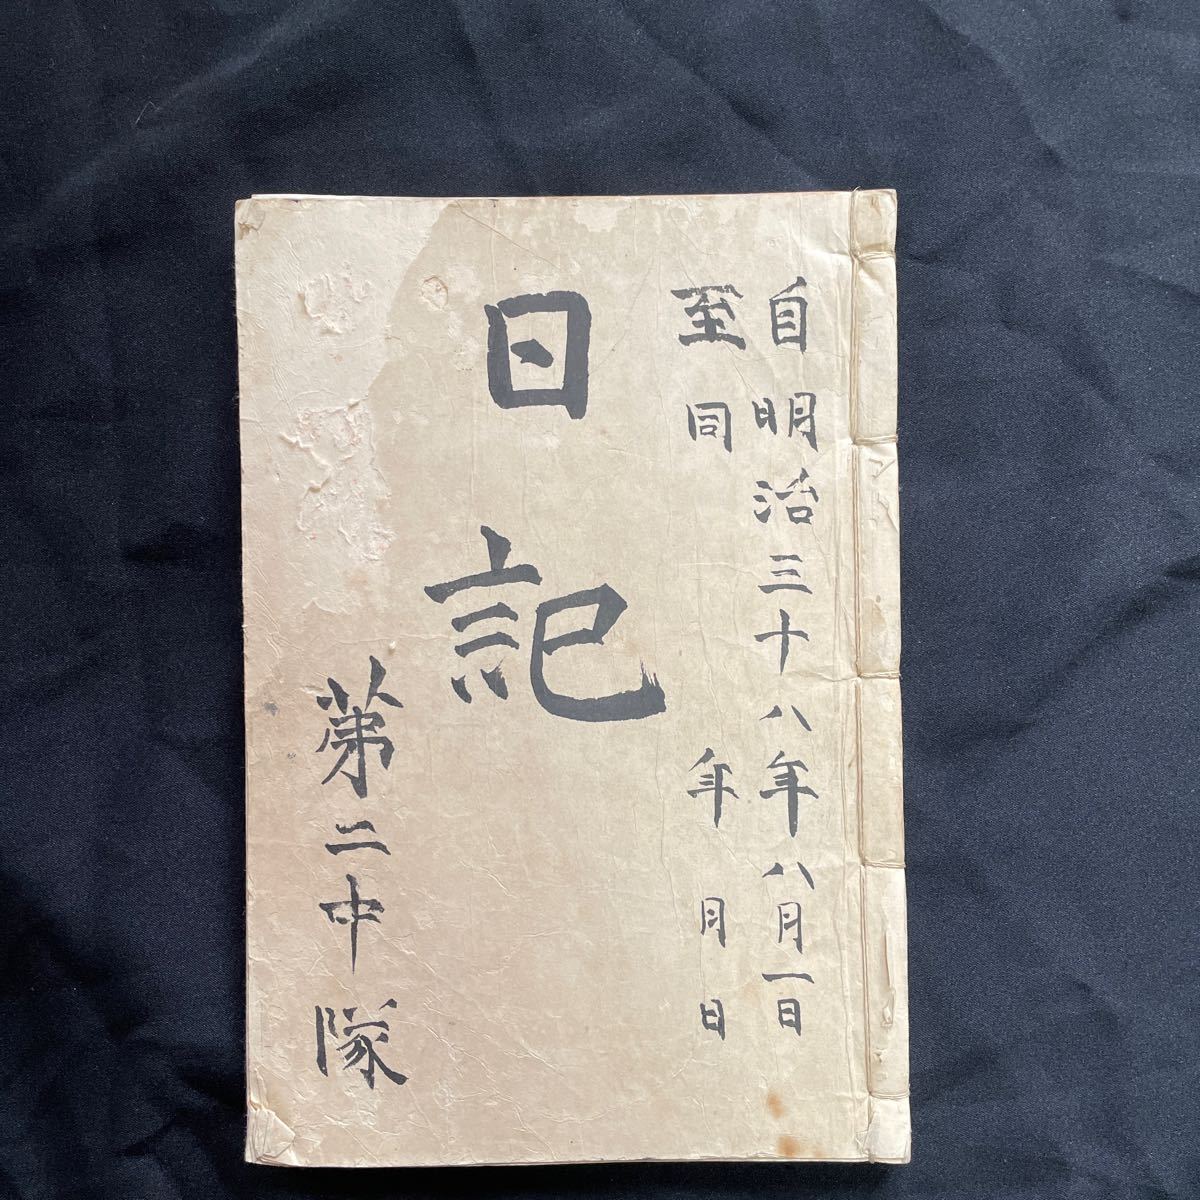 自明治三十八年八月一日
至同 年 月 日
日記
第二中隊